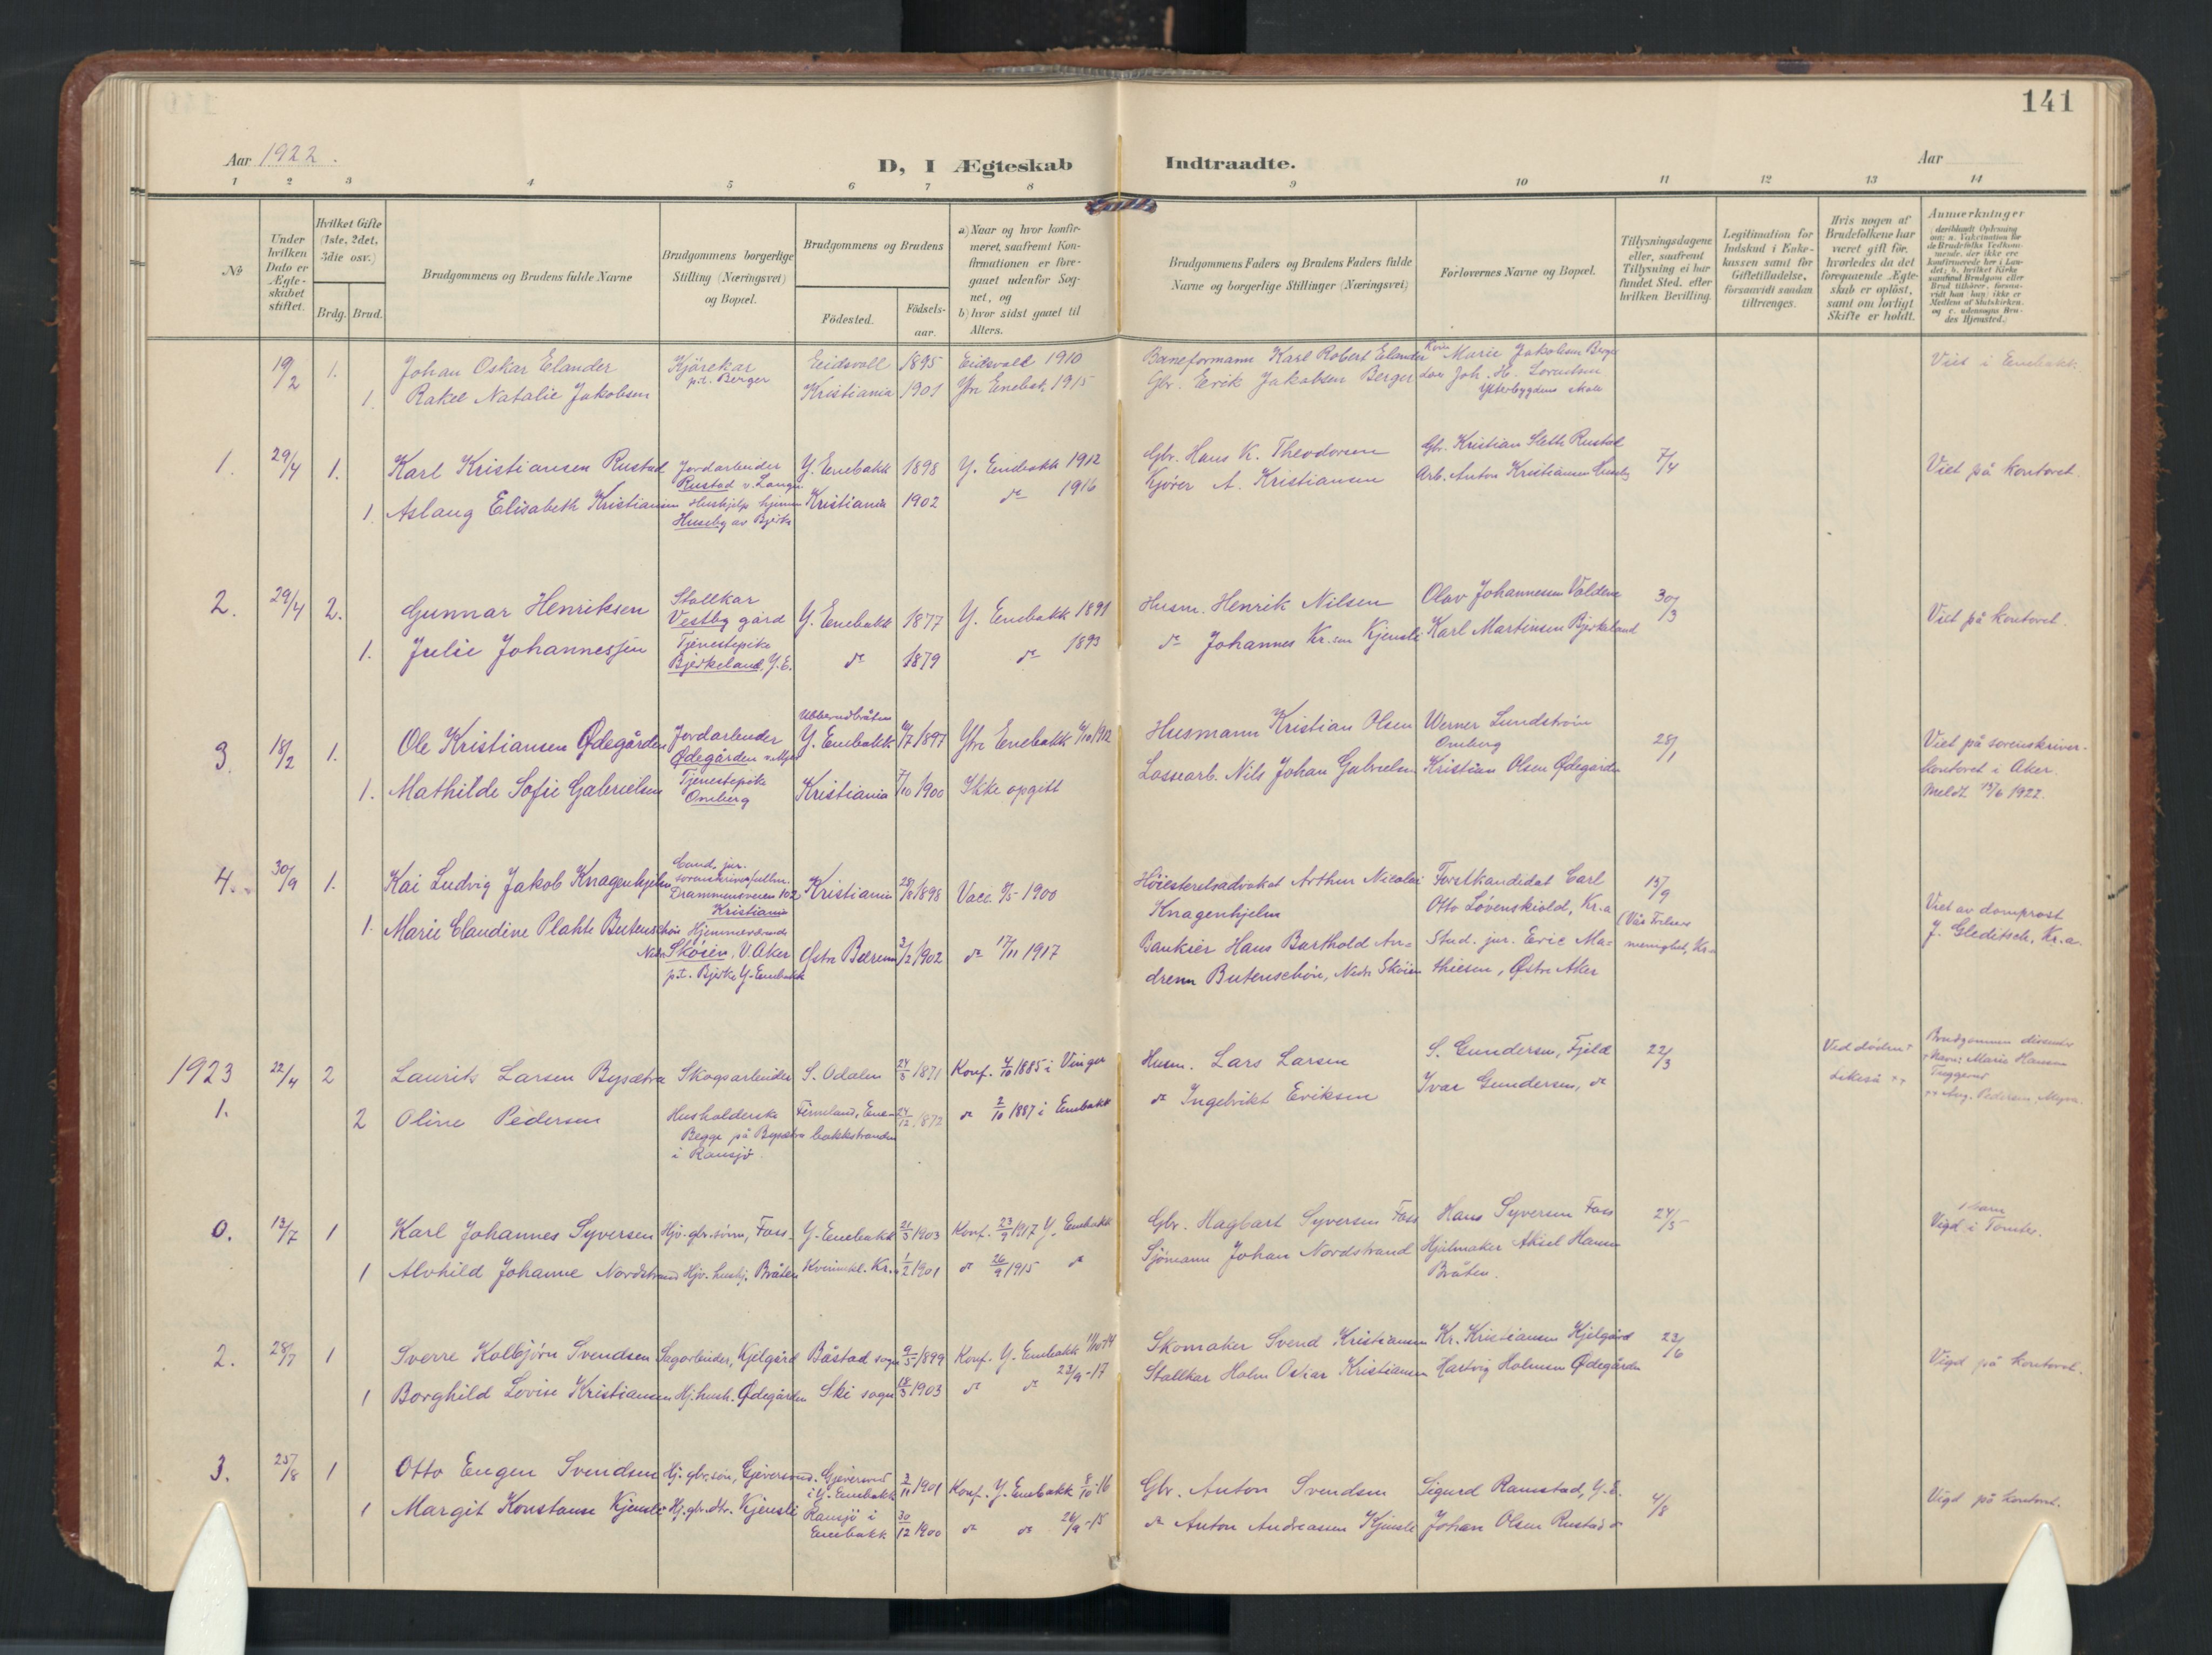 141
Aar 1922.
D, I Ægteskab Indtraadte.
Aar
1 2 3 4 5 6 7 8 9 10 11 12 13 14
No
Under hvilken Dato er Ægteskabet stiftet.
Hvilket Gifte (1ste, 2det, 3die osv.)
Brdg. Brud.
Brudgommens og Brudens fulde Navne
Brudgommens borgerlige Stilling (Næringsvei) og Bopæl.
Brudgommens og Brudens
Födested. Födsels-aar.
a) Naar og hvor konfirmeret, saafremt Konfirmationen er foregaaet udenfor Sognet, og
b) hvor sidst gaaet til Alters.
Brudgommens Faders og Brudens Faders fulde Navne og borgerlige Stillinger (Næringsvei)
Forlovernes Navne og Bopæl.
Tillysningsdagene eller, saafremt Tillysning ei har fundet Sted, efter hvilken Bevilling.
Legitimation for Indskud i Enkekassen samt for Giftetilladelse, forsaavidt saadan tiltrænges.
Hvis nogen af Brudefolkene har været gift før, hvorledes da det foregaaende Ægteskab er oplöst, samt om lovligt Skifte er holdt.
Anmærkninger
19/2 1. Johan Oskar Elander Kjörekar p.t. Berger Eidsvoll 1895 Eidsvoll 1910 Baneformann Karl Robert Elander Marie Jakobsen Berger Viet i Enebakk.
1. Rakel Natalie Jakobsen Kristiania 1901 Ytre Enebak. 1915 Gbr. Erik Jakobsen Berger Joh. H.
Ytterbygdens skole
1. 29/4 1. Karl Kristiansen Rustad Jordarbeider Rustad v. Y. Enebakk 1898 Y. Enebakk 1912 Gbr. Hans K. Theodorsen Gbr. Kristian Rustad 7/4 Viet på kontoret.
1. Aslaug Elisabeth Kristiansen Huskjelp hjemme Huseby av Bjerke Kristiania 1902 do 1916 Kjörer A. Kristiansen Arb. Anton Kristiansen Huseby
2. 29/4 2. Gunnar Henriksen Stallkar Vestby gård Y. Enebakk 1877 Y. Enebakk 1891 Husm. Henrik Nilsen Olav Johannesen 30/3 Viet på kontoret.
1. Julie Johannessen Tjenestepike Bjerkeland, Y.E. do 1879 do 1893 do Johannes Kr.sen Kjensli Karl Martinsen Bjerkeland
3. 18/2 1. Ole Kristiansen Ødegården Jordarbeider Ødegården Y. Enebakk 1897 Ytre Enebakk 1912 Husmann Kristian Olsen Werner Lundström Omberg 28/1 Viet på sorenskriver-
kontoret i Aker.
Meldt 13/6 1922.
1. Mathilde Sofie Gabrielsen Tjenestepike Omberg Kristiania 7/10 1900 Ikke opgitt Lossearb. Nils Johan Gabrielsen Kristian Olsen Ødegården
4. 30/9 1. Kai Ludvig Jakob Knagenhjelm Cand. jur. Drammensveien 102, Kristiania Kristiania 1898 Vacc. 1900 Höiesteretsadvokat Arthur Nicolai Knagenhjelm Forstkandidat Carl Otto Løvenskiold, Kr.a 17/9
Viet av domprost
J. Gleditsch, Kr.a.
1. Marie Claudine Plahte Butenschön Hjemmeværende Nedre Skøien, V. Aker p.t. Bjerke Y. Enebakk Østre Bærum 2/2 1902 do 17/11 1917 Bankier Hans Barthold Andresen Butenschön, Nedre Skøien Stud. jur. Eric Mathiesen, Østre Aker (Vår Frelsers menighet, Kr.a
1923
1. 22/4 2 Laurits Larsen Bysætra Skogsarbeider S. Odalen 24/5 1871 Konf. 4/10 1885 i Vinger Husm. Lars Larsen S. Gundersen, Fjeld 22/3 Ved döden +
Likeså ++
2 Oline Pedersen Husholderske Enebakkstranden 24/12 1872 do 2/10 1887 i Enebakk do Ingebrikt Eriksen Ivar Gundersen, do
Begge på Bysætra i Ransjö
0. 13/7 1 Karl Johannes Syversen Hjv. gbr. sönn, Foss Y. Enebakk 21/5 1903 Konf. 23/9 1917 Y. Enebakk Gbr. Hagbart Syversen Foss Hans Syversen Foss 24/5 Vigd i Tomter.
1 Alvhild Johanne Nordstrand Hjv. Bråten Kr. 1/2 1901 do 26/9 1915 do Sjömann Johan Nordstrand Hjulmaker Aksel Hansen Bråten.
2. 28/7 1 Sverre Kolbjörn Svendsen Sagarbeider, Kjilgård Båstad sogn 9/5 1899 Konf. Y. Enebakk 11/10 14 Skomaker Svend Kristiansen Kr. Kristiansen Kjilgård 23/6 Vigd på kontoret.
1 Borghild Lovise Kristiansen Hj. hush. Ødegården Ski sogn 1903 do do 23/9-17 Stallkar Holm Oskar Kristiansen Hartvig Holmsen Ødegården
3. 25/8 1 Otto Eugen Svendsen Hj. gbr. sön, Gjeversrud i Y. Enebakk 3/11 1901 Konf. Y. Enebakk 8/10-16 Gbr. Anton Svendsen Sigurd Ramstad, Y.E. 4/8 Vigd på kontoret.
1 Margit Konstanse Kjensli Hj. gbr. dtr. Kjensli Ransjö i Enebakk 30/12 1900 do do 26/9-15 do Anton Andreassen Kjensli Johan Olsen Rustad do